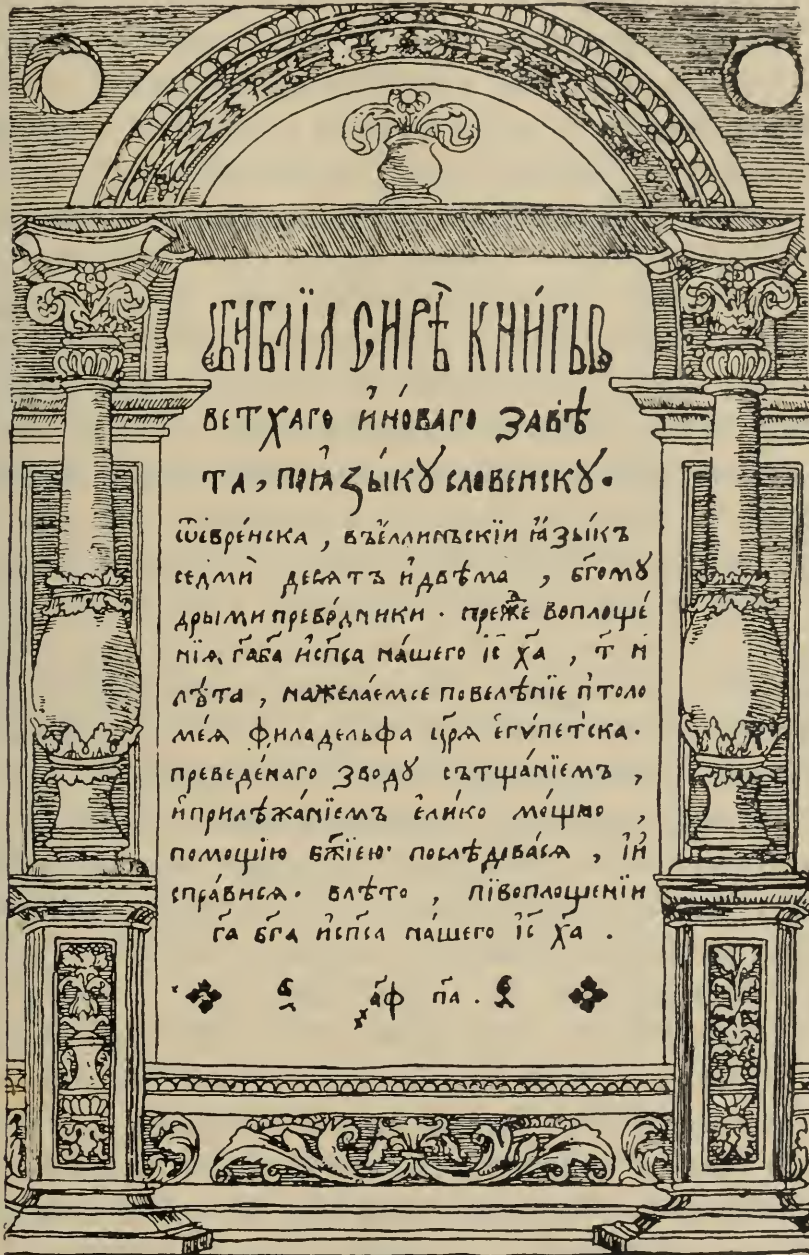 БИБЛЇА СИРѢ КНИ́ГЫ
ВЕТХАГО И҆НО́ВАГО ЗАВѢ
ТА, ПОꙖ҆ЗЫ́КꙊ СЛОВЕНСКꙊ.
ѿе҆вре́йска, въе҆ллиньскїи ꙗ҆зы́къ
седмⷣи десѧтъ и҆двѣма, бг҃омꙋ
дрыми прево́дники. преⷤде воплоще
нїѧ га҃ба҃ и҆сп҃са на́шего і҆с҃ ха҃, т҃ и҃
лѣ́та, нажела́емое повелѣ́нїе птоло
ме́ѧ филаделфа цр҃ѧ є҆гѵ́петска.
преведе́наго зводꙋ сътща́нїемъ,
и҆прилѣжа́нїемъ є҆ли́ко мо́щно,
помощїю бж҃їею послѣ́довасѧ, і҆и
спра́висѧ. влѣ́то, повоплощенїи
га҃ бг҃а и҆сп҃са на́шего і҆с҃ ха҃.
҂а҃ф па҃.